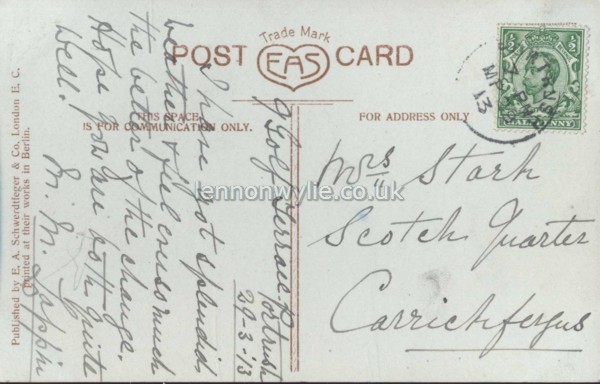 Trade Mark
POST CARD
EAS
THIS SPACE
IS FOR COMMUNICATION ONLY.
FOR ADDRESS ONLY.
9 Golf Terrace Portrush
29-3-13
I have got splendid
weather & feel much
the better of the change.
Hope you are both quite
well.
M. M.
Mrs Stark
Scotch Quarter
Carrickfergus
½ ½
HALFPENNY
13
lennonwylie.co.uk
Published by E. A. Schwerdtfeger & Co., London E. C.
Printed at their works in Berlin.